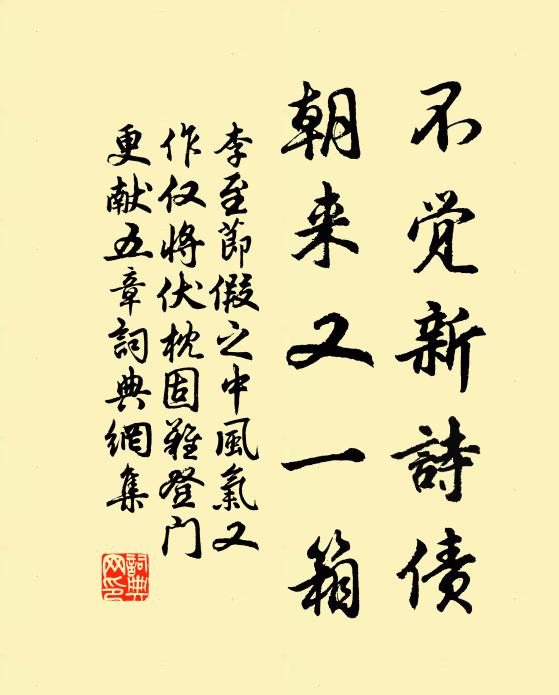 不觉新詩债
朝来又一箱
李至節假之中風氣又
作仅將伏枕固難登门
更献五章詞典網集
詞典网印